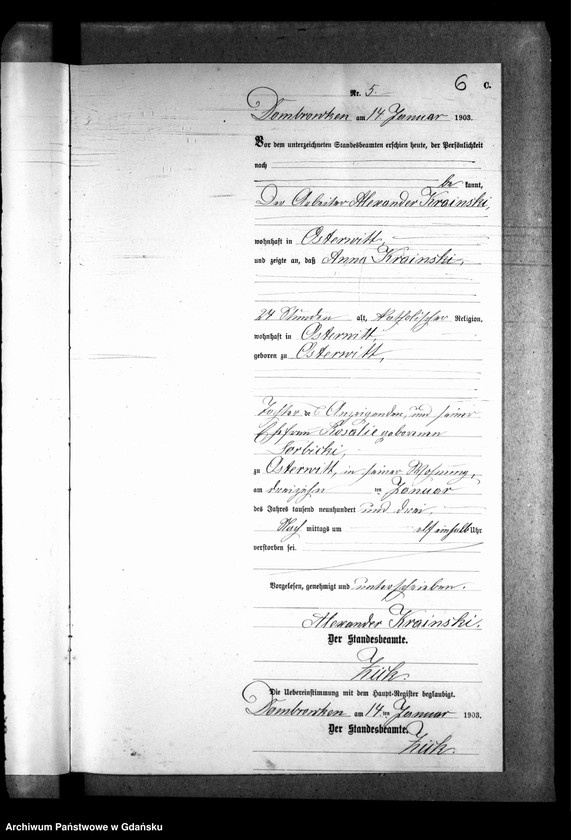 6 C.
Nr. 5.
Dombrowken am 14. Januar 1903.
Vor dem unterzeichneten Standesbeamten erschien heute, der Persönlichkeit
nach
be kannt,
Der Arbeiter Alexander Krainski,
wohnhaft in Osterwitt,
und zeigte an, daß Anna Krainski,
24 Stunden alt, katholischer Religion,
wohnhaft in Osterwitt,
geboren zu Osterwitt,
Tochter des Anzeigenden, und seiner
Ehefrau Rosalie geborenen
Sorbicki,
zu Osterwitt, in seiner Wohnung,
am dreizehn ten Januar
des Jahres tausend neunhundert und drei,
Nach mittags um elf einhalb Uhr
verstorben sei.
Vorgelesen, genehmigt und unterschrieben.
Alexander Krainski.
Der Standesbeamte.
Die Uebereinstimmung mit dem Haupt-Register beglaubigt.
Dombrowken am 14. ten Januar 1903.
Der Standesbeamte.
Archiwum Państwowe w Gdańsku